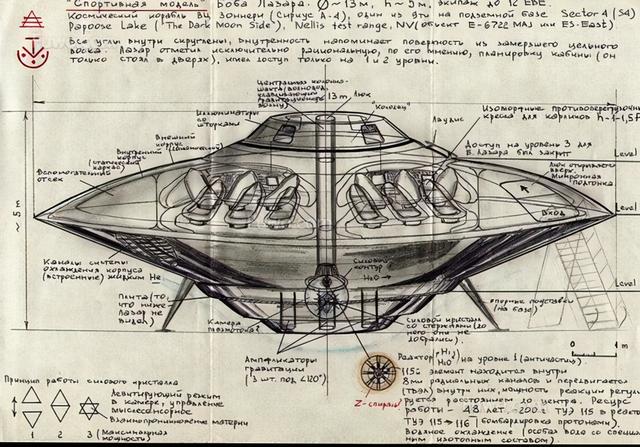 "Спортивная модель" Боба Лазара. Ø~13м, h~5м, экипаж до 12 ЕВЕ.
Космический корабль ВЦ Зоннери (Сириус А-4), один из 9ти на подземной базе Sector 4 (S4)
Papoose Lake ("The Dark Moon Side"), Nellis test range, NV (объект E-6722 MAJ или ES-East)
Все углы внутри скруглены, внутренность напоминает поверхность из замерзшего цельного
воска. Лазар отметил исключительно рациональную, по его мнению, планировку кабины (он
только стоял в дверях), имел доступ только на 1 и 2 уровни.
Центральная колонна-
шахта/волновод,
гравитационную
волну)
13 m
Люк
"Колодец"
Иллюминаторы
со
шторками
Лаудис
Изоморфные противоперегрузочн
кресла для карликов h-1-1,5F
Внешний
корпус
Внутренний
корпус
(статический
каркас)
Вспомогательный
отсек
Доступ на уровень 3 для
Б. Лазара был закрыт
Level
Люк открывался
вверх.
Микронная
подгонка
~ 5 m
Level
Вход
Каналы системы
охлаждения корпуса
(встроенные) жидким He
Силовой
контур
H2O→
Level
Плита (то,
что ниже
Лазар не
видел)
Камера
опорные подставки
(на базе)
силовой кристалл
со стержнями (до
него они не
добрались).
Амплификаторы
гравитации
(3 шт. под <120°)
Z-спираль
0 1 m
Реактор на уровне 1 (античастиц)
115й элемент находится внутри
8ми радиальных каналов и передвигается
(твэл) внутри них, мощность реакции регули
руется расстоянием до центра. Ресурс
работы - 48 лет - 200 г ТУЭ 115 в реакто
ТУЭ 115→116 (бомбардировка протонами).
Водяное охлаждение (особая вода со специаль
ным изотопным составом).
Принцип работы силового кристалла
Левитирующий режим
в камере, управление
мыслесенсорное
Взаимопроникновение материи
1 2 3 (максимальная
мощность)